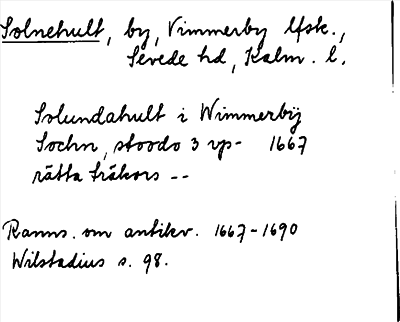 Solnehult, by, Vimmerby lfsk.,
Sevede hd, Kalm. l.
Solundahult i Wimmerbÿ
Sochn, stoodo 3 vp- 1667
rätta kråkors --
Ranns. om antikv. 1667-1690
Wilstadius s. 98.